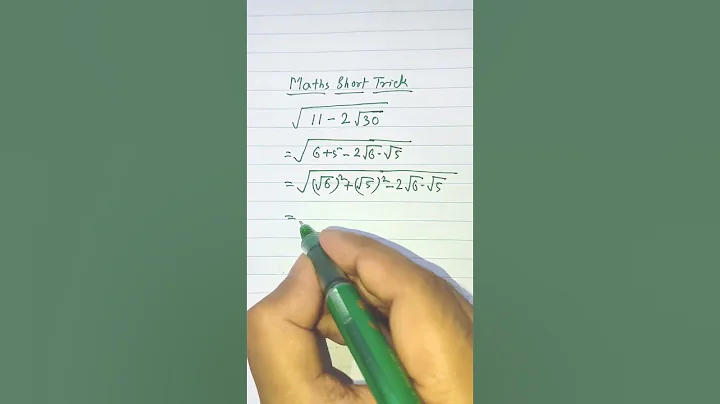 Maths Short Trick
√(11 - 2√30)
= √(6+5 - 2√6·√5)
= √((√6)² + (√5)² - 2√6·√5)
=